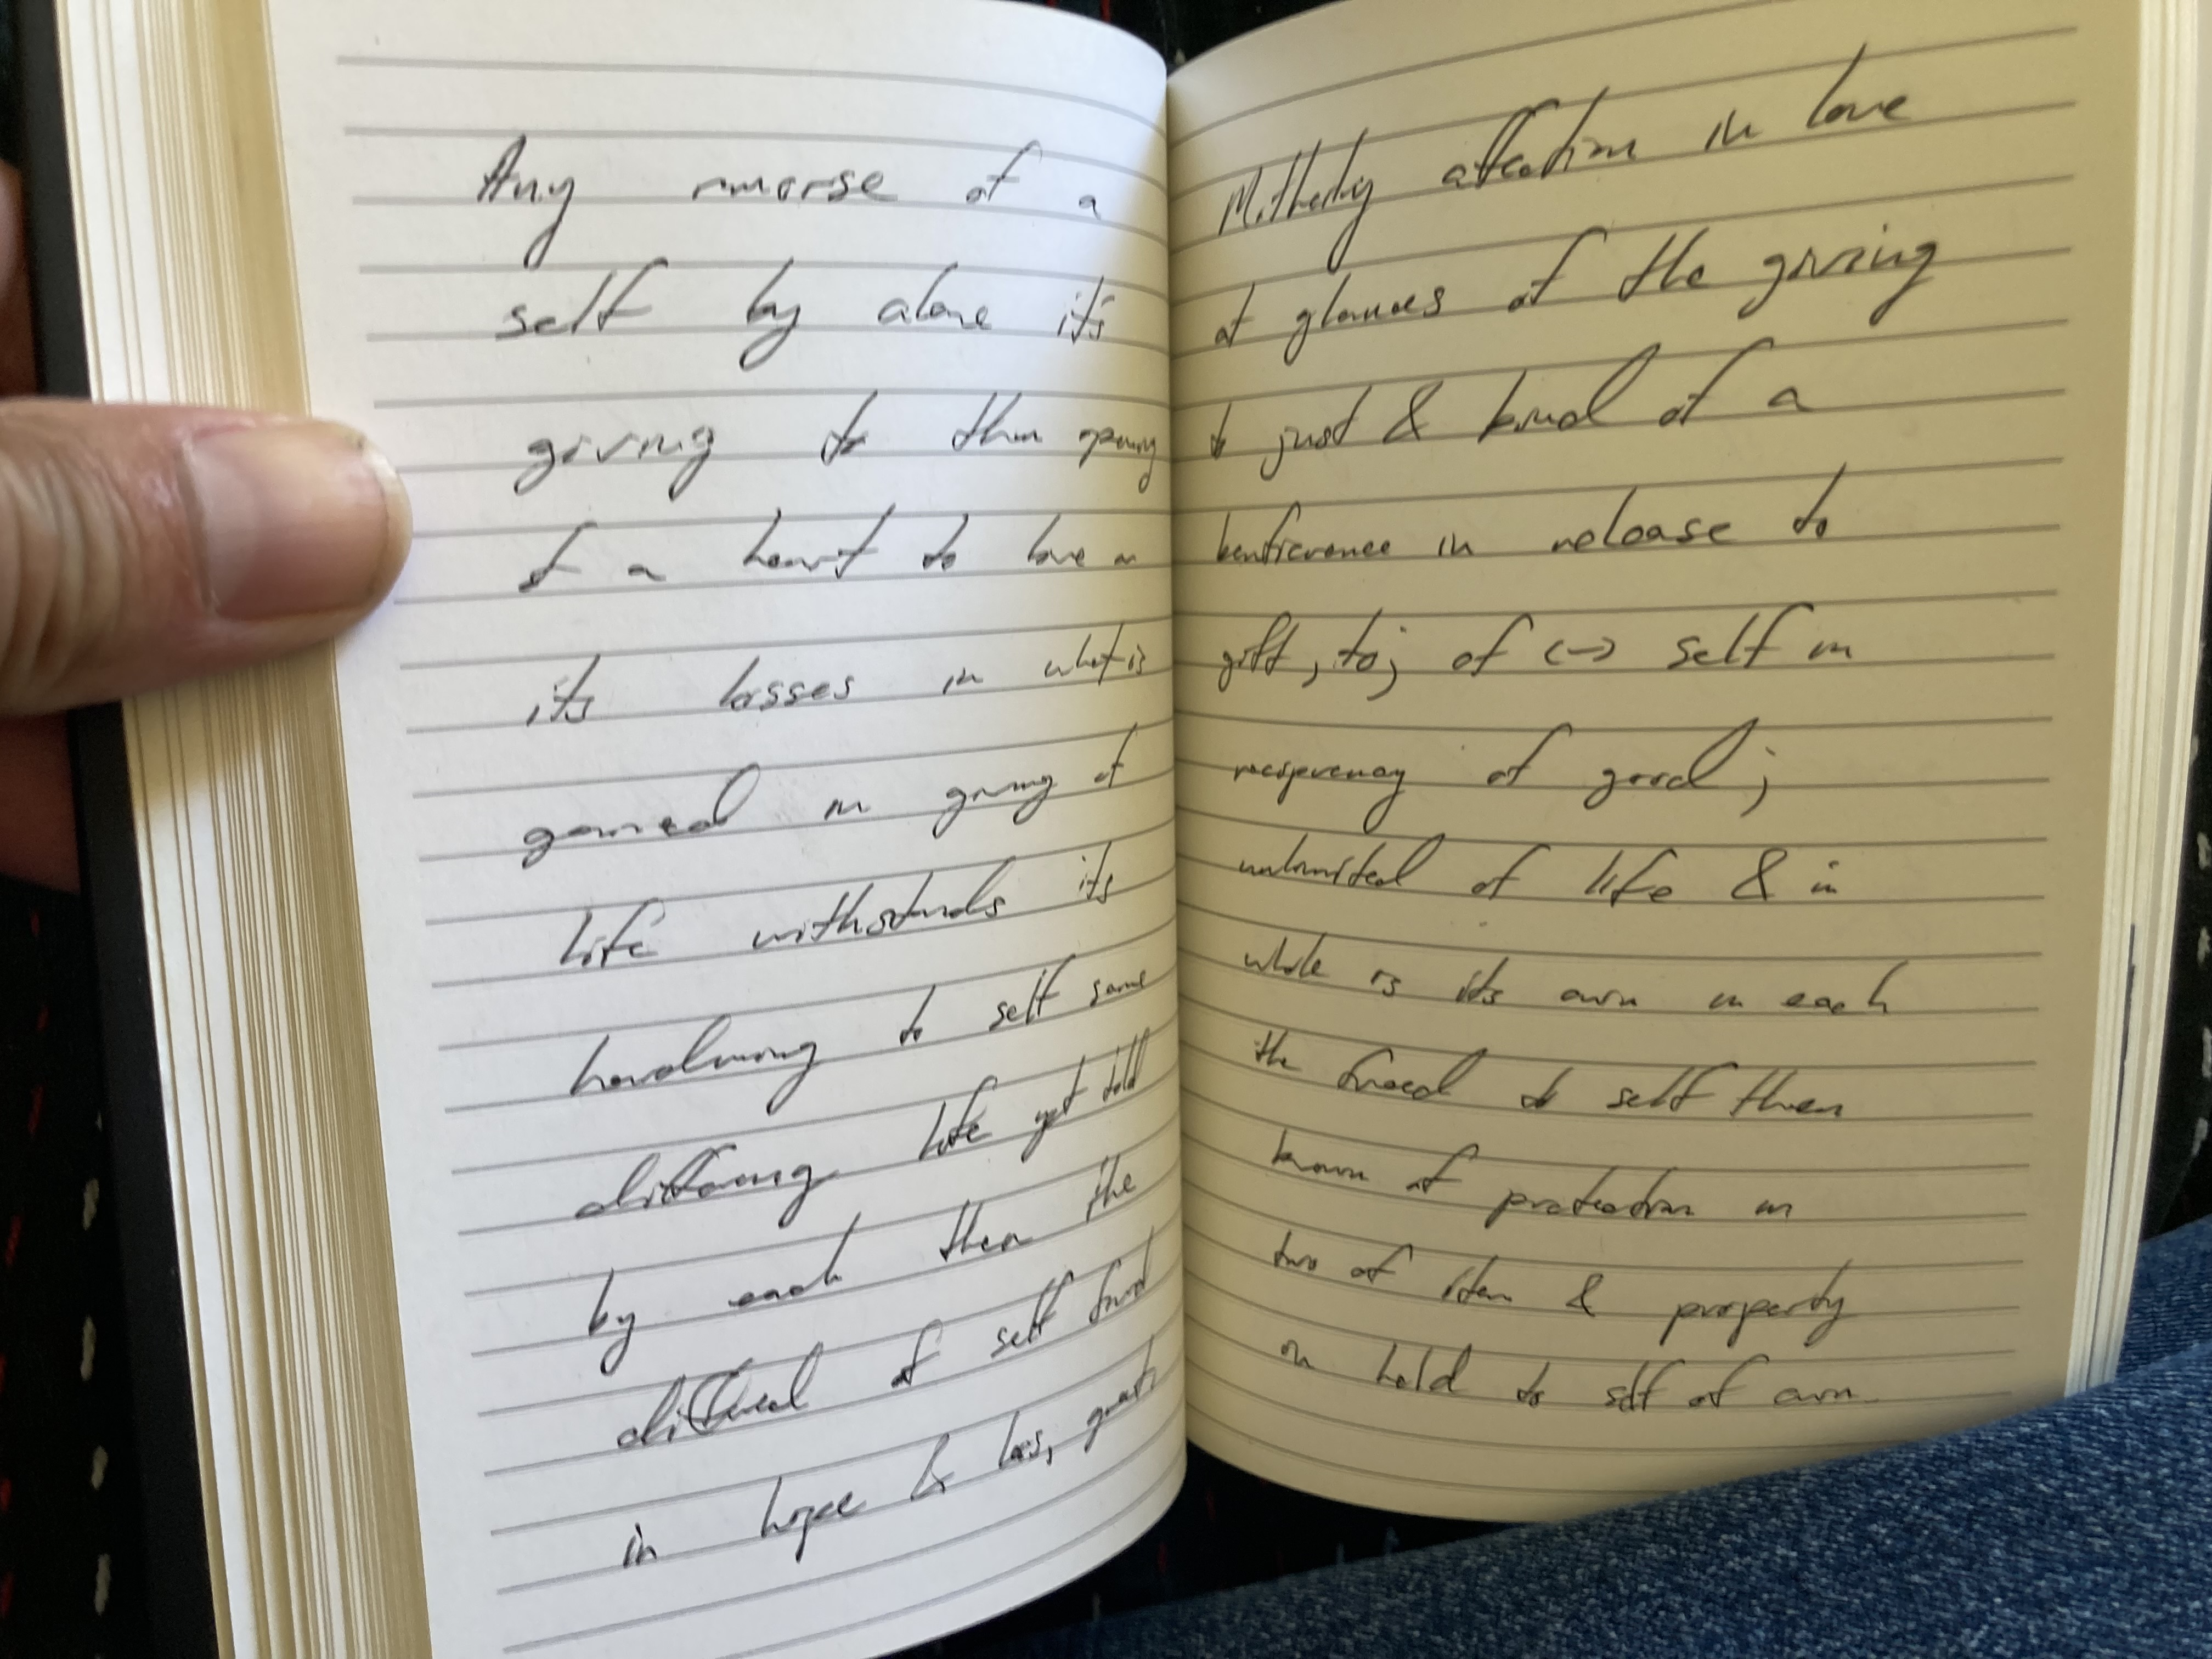 Any rmorse of a
self by alone its
giving to then opening
of a heart to love in
its losses in what is
gained in giving of
life withstands its
to self same
life yet told
by each then the
of self found
in hope & loss,
Motherly affection in love
at glances of the giving
to just & kind of a
in release to
gift, to; of <-> self in
of good;
unlimited of life & in
whole is its own in each
the freed to self then
known of protection in
two of item & property
on hold to self of own.